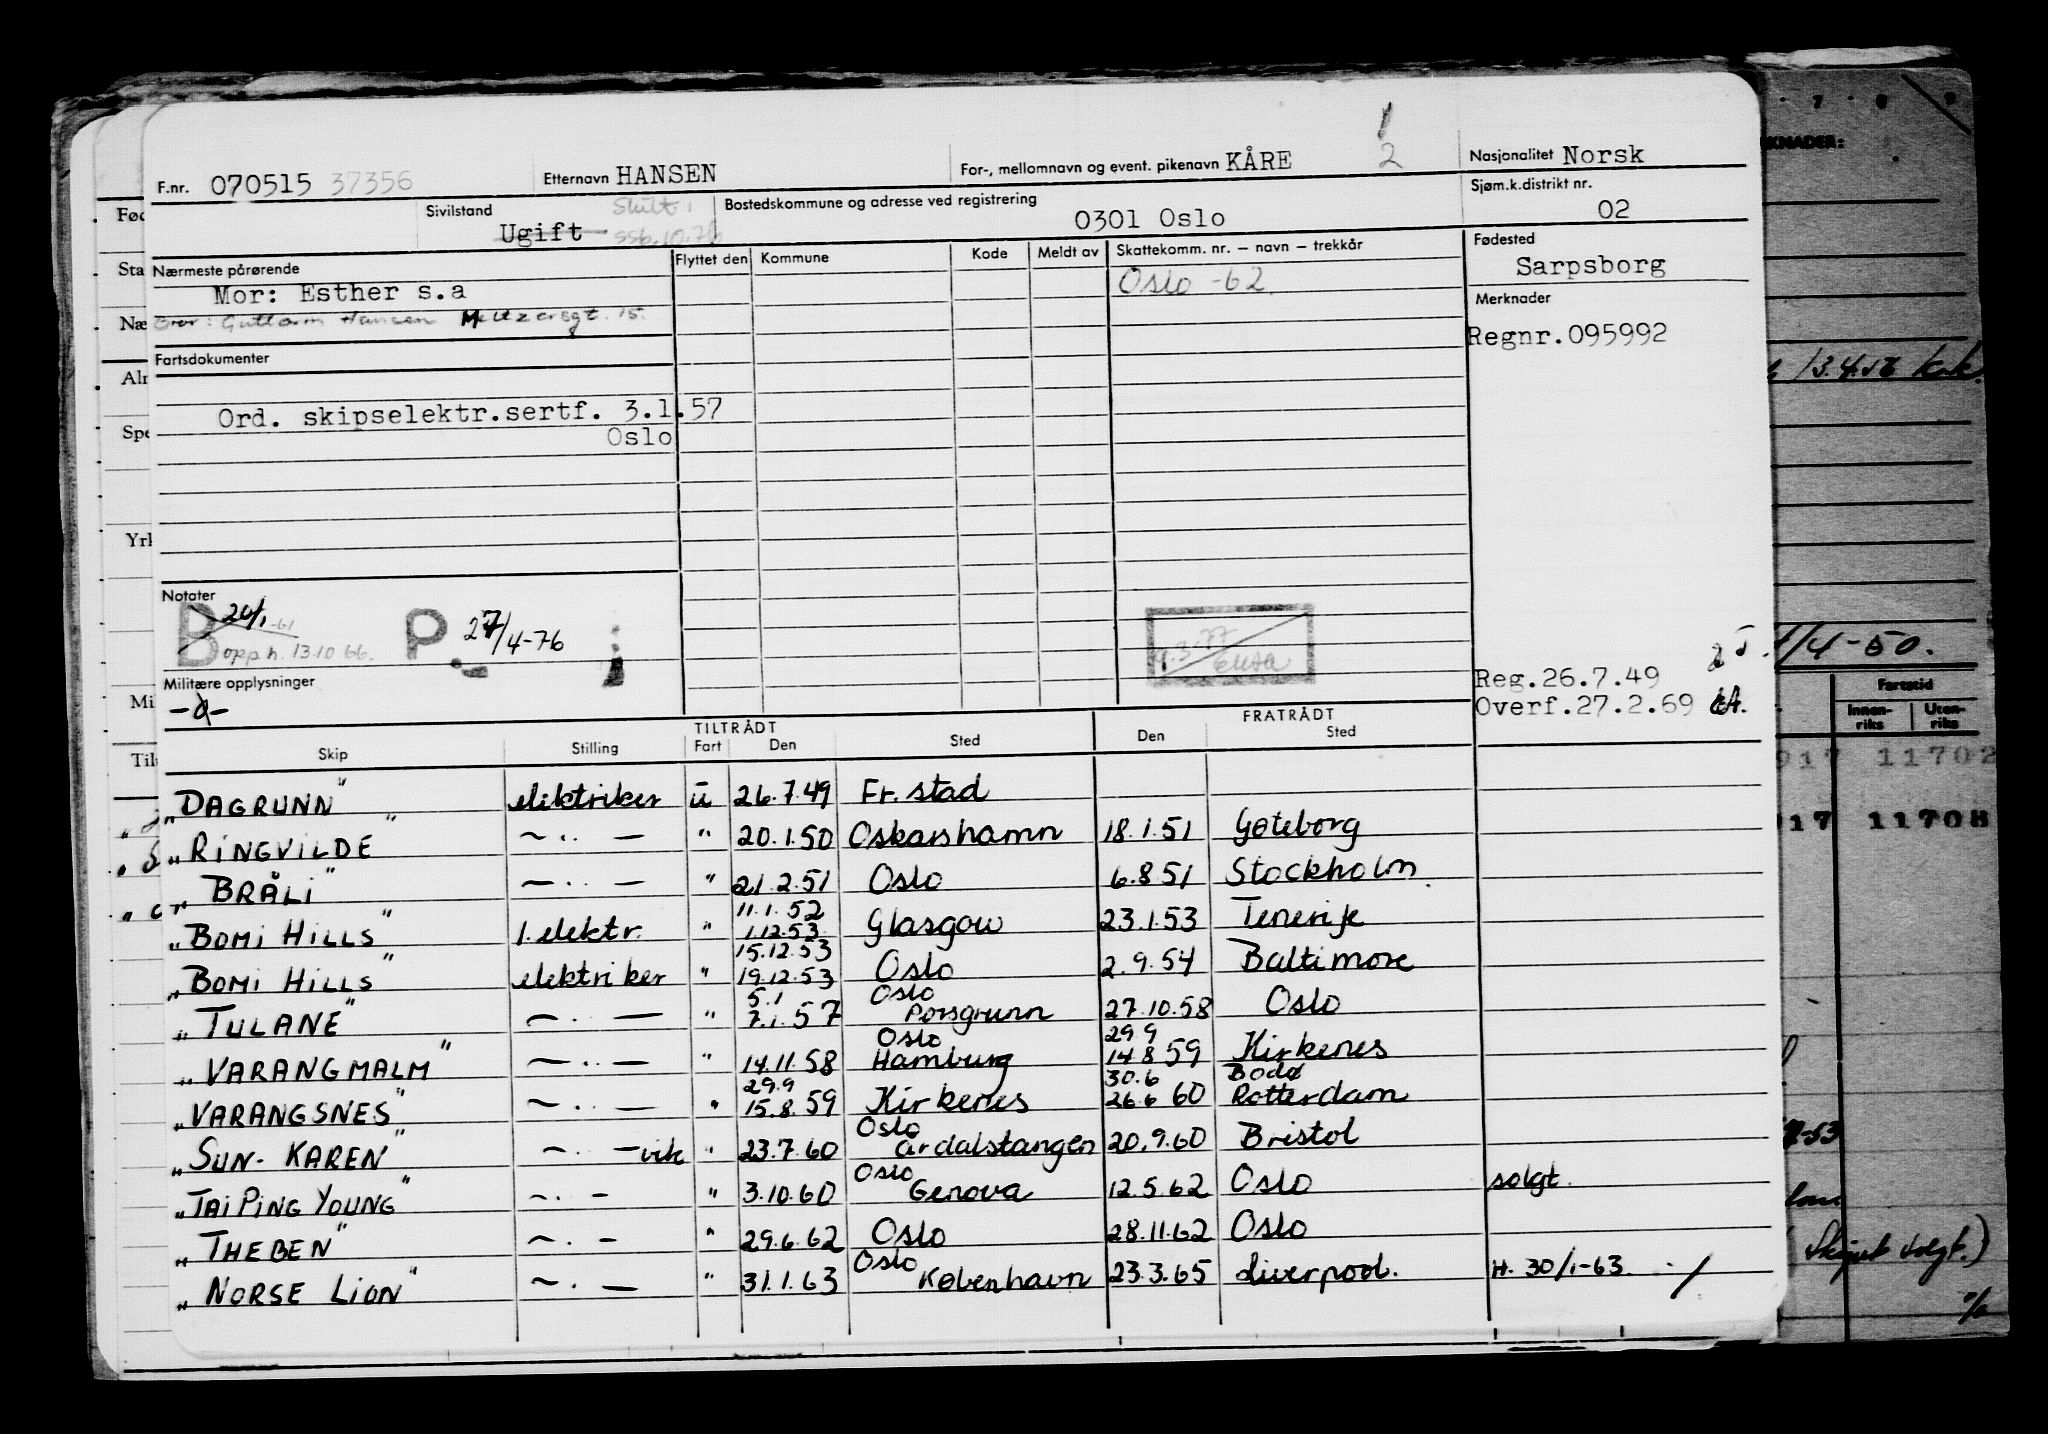 1
2
F.nr. 070515 37356 Etternavn HANSEN For-, mellomnavn og event. pikenavn KÅRE Nasjonalitet Norsk
Sivilstand Ugift Skilt Bostedskommune og adresse ved registrering 0301 Oslo Sjøm.k.distrikt nr. 02
Nærmeste pårørende Flyttet den Kommune Kode Meldt av Skattekomm. nr. – navn – trekkår Fødested
Mor: Esther s.a Oslo -62. Sarpsborg
Bror: Guttorm Hansen Meltzersgt. 15. Merknader
Regnr.095992
Fartsdokumenter
Ord. skipselektr.sertf. 3.1.57
Oslo
Notater
B 20/1 -61 P 27/4-76
opph. 13.10 66. 4.3.77
Militære opplysninger Reg.26.7.49
-d- Overf.27.2.69
TILTRÅDT FRATRÅDT
Skip Stilling Fart Den Sted Den Sted
„DAGRUNN" elektriker u 26.7.49 Fr.stad
„RINGVILDE" – .. – " 20.1.50 Oskarshamn 18.1.51 Gøteborg
„BRÅLI" – .. – " 21.2.51 Oslo 6.8.51 Stockholm
11.1.52
„BOMI HILLS" 1. elektr. " 1.12.53 Glasgow 23.1.53 Tenerife
15.12.53
„BOMI HILLS" elektriker " 19.12.53 Oslo 2.9.54 Baltimore
5.1 Oslo
„TULANE" – . – " 7.1.57 Porsgrunn 27.10.58 Oslo
Oslo 29.9
„VARANGMALM" – .. – " 14.11.58 Hamburg 14.8 59 Kirkenes
29.9 30.6 Bodø
„VARANGSNES" – . – " 15.8.59 Kirkenes 26.6 60 Rotterdam
Oslo
„SUN-KAREN" – . – vik " 23.7.60 Årdalstangen 20.9.60 Bristol
Oslo
„TAI PING YOUNG" – . – " 3.10.60 Genova 12.5.62 Oslo solgt.
„THEBEN" – . – " 29.6.62 Oslo 28.11.62 Oslo
Oslo
„NORSE LION" – . – " 31.1.63 København 23.3.65 Liverpool. H. 30/1-63.
Fød
Sta
Næ
Aln
Spe
Yrk
Mi
Til
7 8 9
KNADER:
13.4.56
1/4-50.
Fartstid
Innen-riks Uten-riks
917 11702
917 11708
-53
Skipet solgt.)